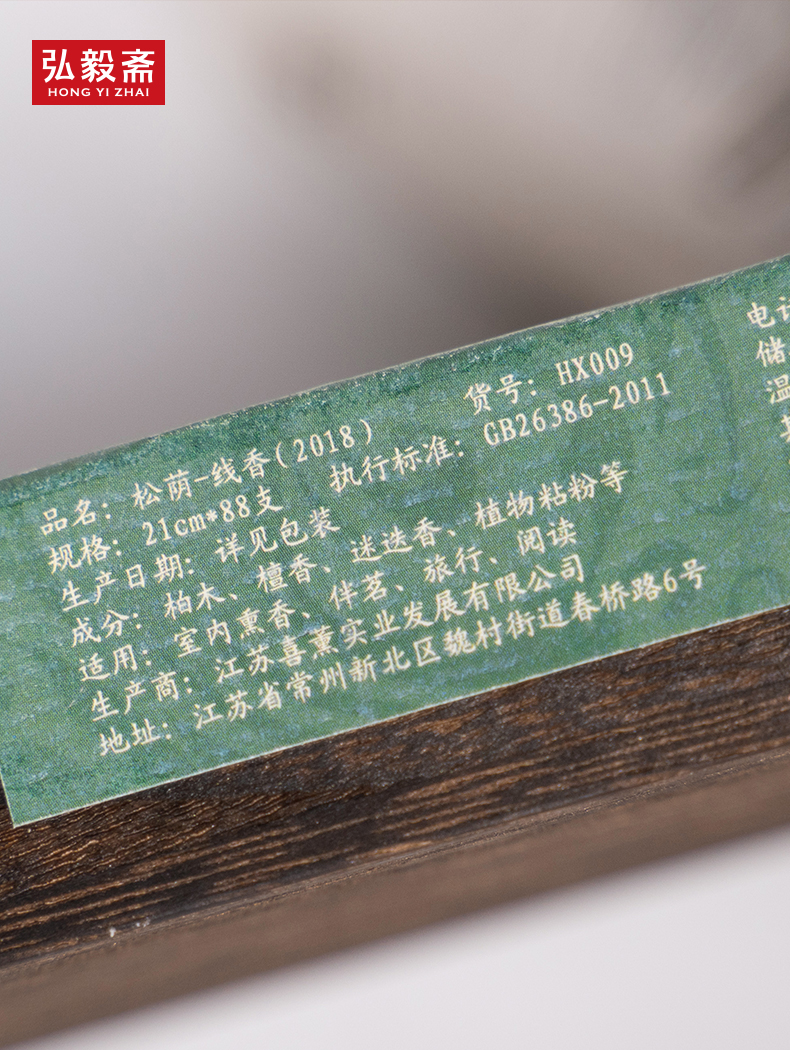 弘毅斋
HONG YI ZHAI
品名：松荫-线香(2018) 货号：HX009
规格：21cm*88支 执行标准：GB26386-2011
生产日期：详见包装
成分：柏木、檀香、迷迭香、植物粘粉等
适用：室内熏香、伴茗、旅行、阅读
生产商：江苏喜薰实业发展有限公司
地址：江苏省常州新北区魏村街道春桥路6号
电
储
温